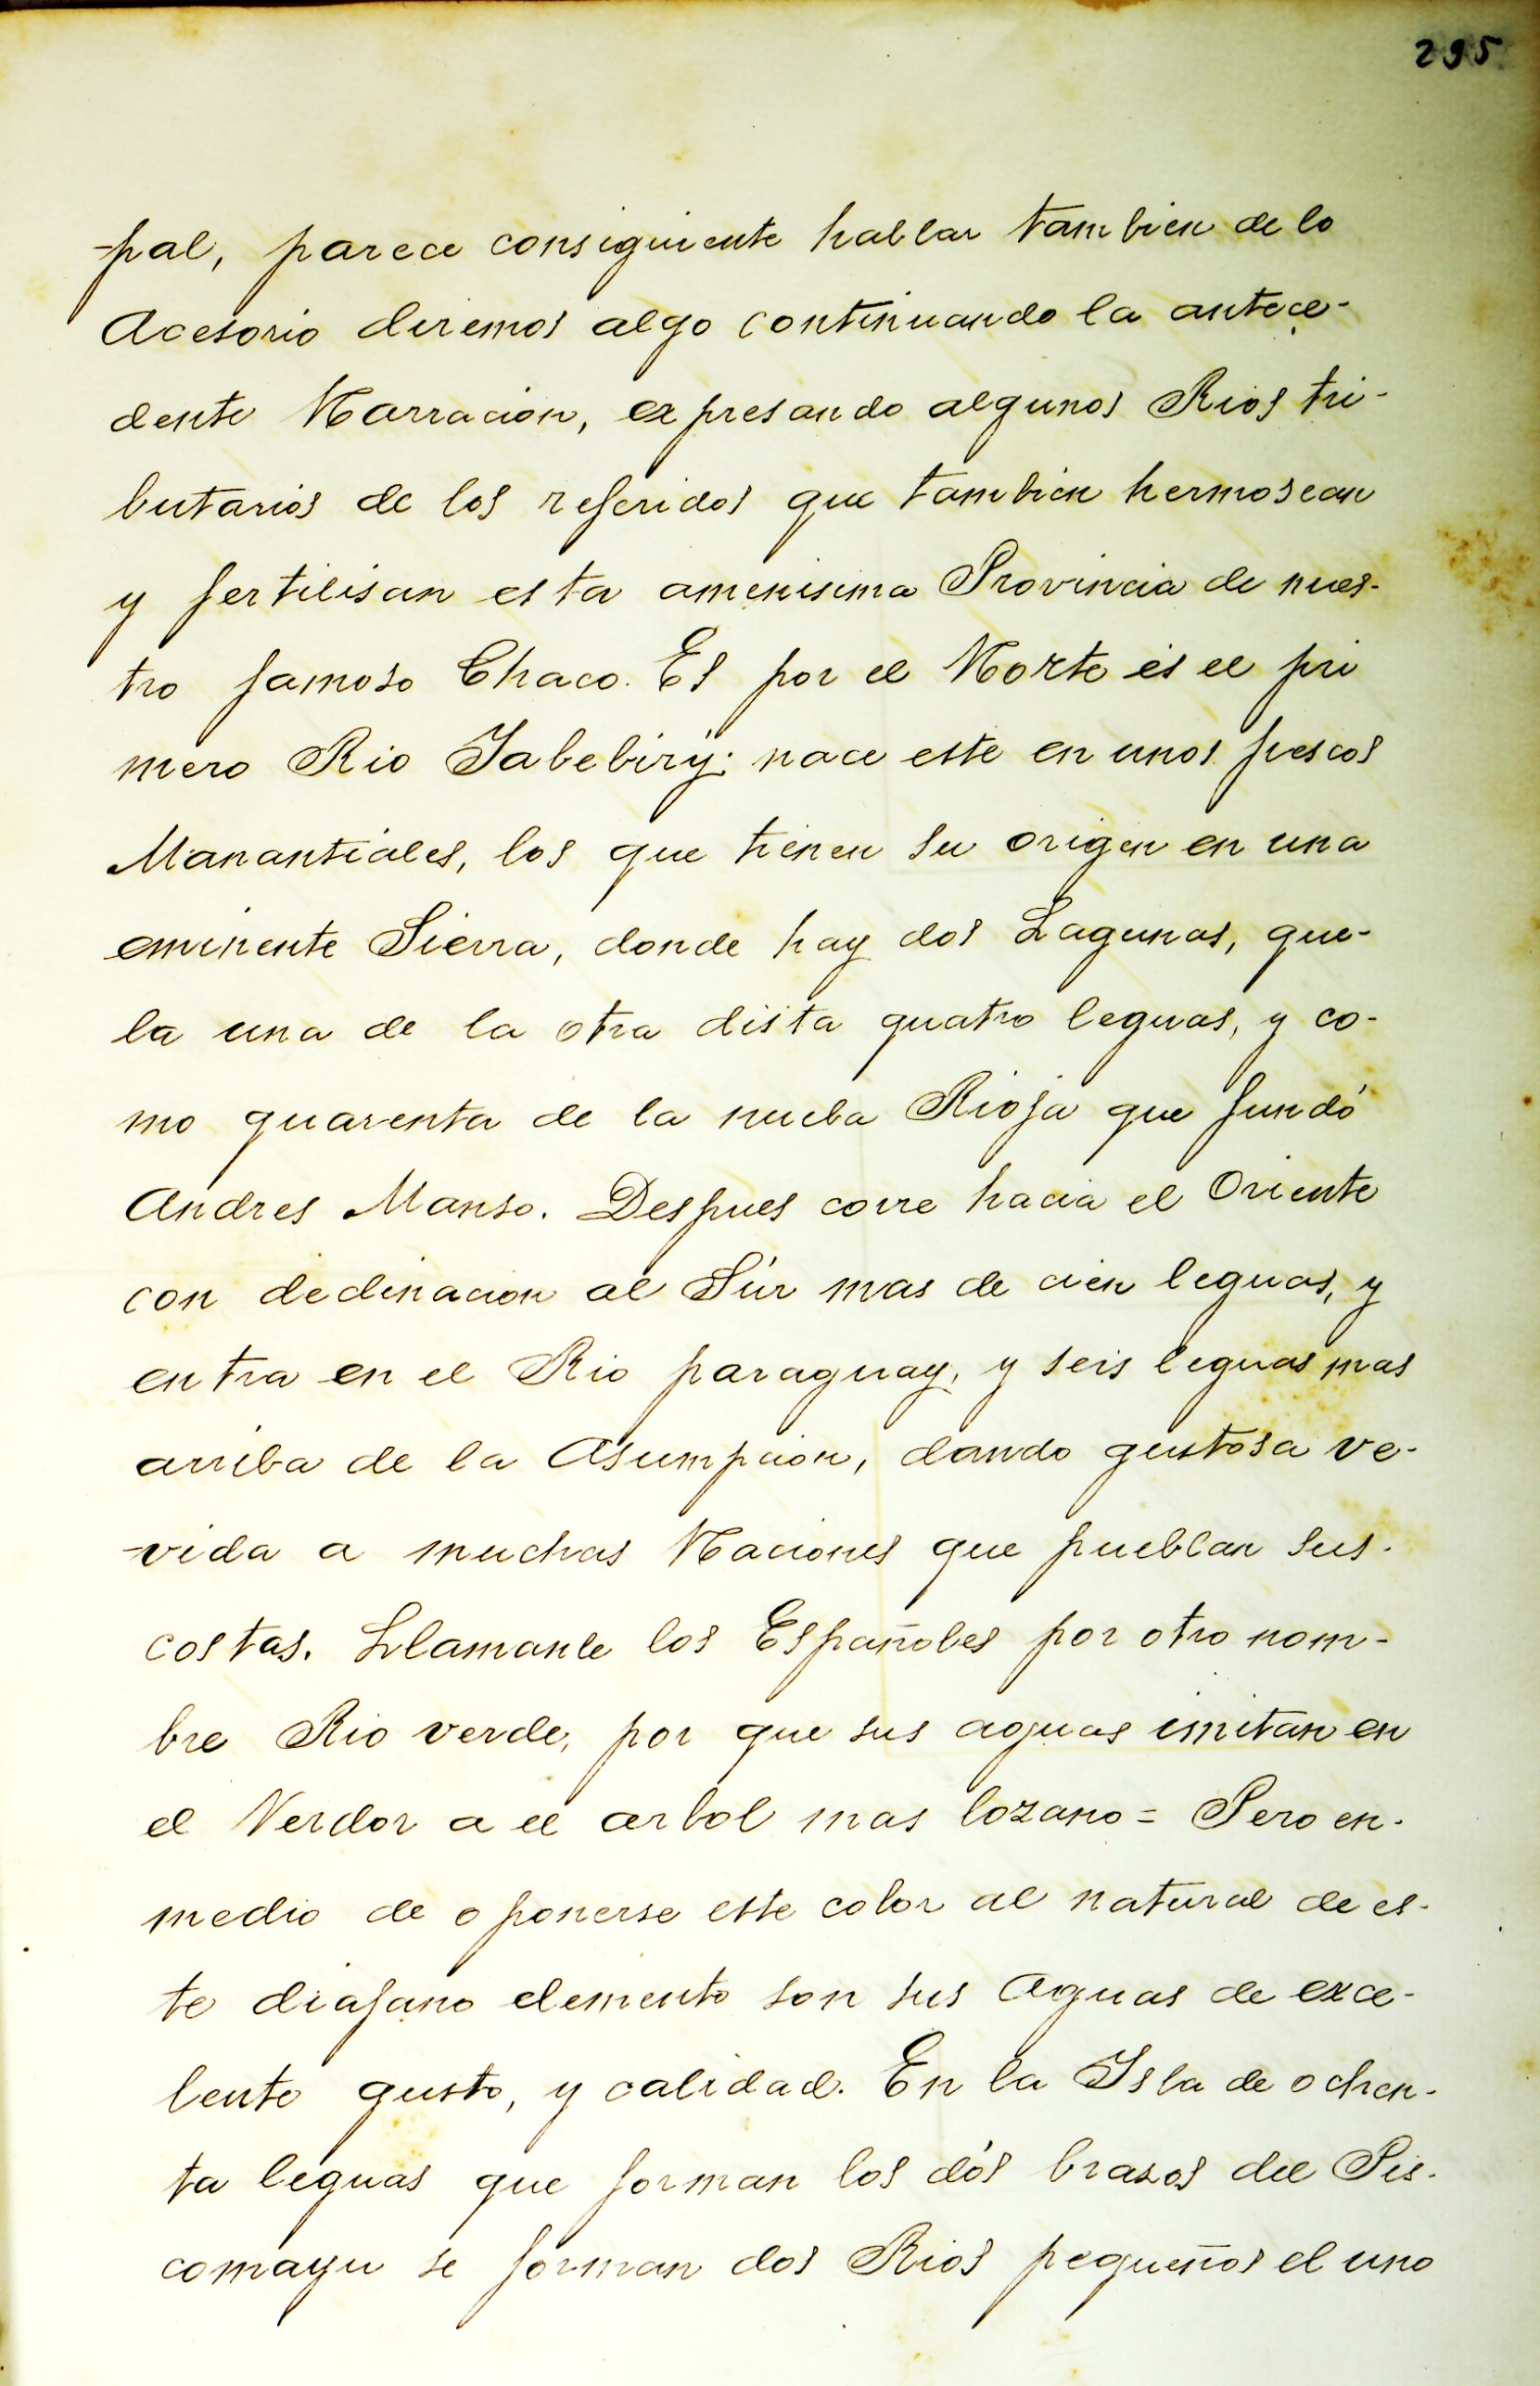 295
-pal, parece consiguiente hablar tambien de lo
Acesorio diremos algo continuando la antece-
dente Narracion, expresando algunos Rios tri-
butarios de los referidos que tambien hermosean
y fertilisan esta amenisima Provincia de nues-
tro famoso Chaco. Es por el Norte es el pri
mero Rio Jabebirÿ: nace este en unos frescos
Manantiales, los que tienen su origen en una
eminente Sierra, donde hay dos Lagunas, que-
la una de la otra dista quatro leguas, y co-
mo quarenta de la nueba Rioja que fundó
Andres Manso. Despues corre hacia el Oriente
con declinacion al Súr mas de cien leguas, y
entra en el Rio paraguay, y seis leguas mas
arriba de la Asumpcion, dando gustosa ve-
-vida a muchas Naciones que pueblan sus-
costas. Llamanle los Españoles por otro nom-
bre Rio verde, por que sus aguas imitan en
el Verdor a el arbol mas lozano = Pero en-
medio de oponerse este color al natural de es-
te diafano elemento son sus Aguas de exce-
lente gusto, y calidad. En la Isla de ochen-
ta leguas que forman los dós brasos del Pis-
comayu se forman dos Rios pequeños el uno